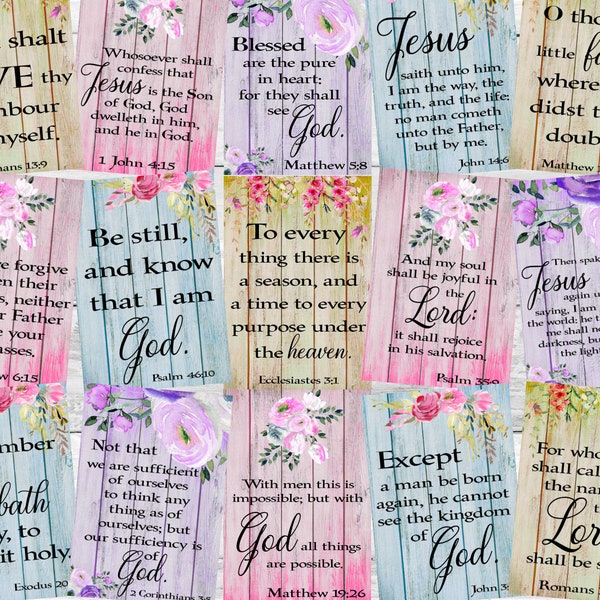 shalt
VE thy
bour
yself.
ans 13:9
Whosoever shall
confess that
Jesus is the Son
of God, God
dwelleth in him,
and he in God.
1 John 4:15
Blessed
are the pure
in heart:
for they shall
see
God.
Matthew 5:8
Jesus
saith unto him,
I am the way, the
truth, and the life:
no man cometh
unto the Father,
but by me.
John 14:6
O tho
little fa
where
didst th
doub
Matthew
ve forgive
en their
s, neither
r Father
e your
asses.
6:15
Be still,
and know
that I am
God.
Psalm 46:10
To every
thing there is
a season, and
a time to every
purpose under
the heaven.
Ecclesiastes 3:1
And my soul
shall be joyful in
the
Lord:
it shall rejoice
in his salvation.
Psalm 35:9
Then spak
Jesus
again u
saying, I am
the world: he t
me shall no
darkness, bu
the light
mber
bath
y, to
it holy.
Exodus 20
Not that
we are sufficient
of ourselves
to think any
thing as of
ourselves; but
our sufficiency is
of
God.
2 Corinthians 3:5
With men this is
impossible; but with
God all things
are possible.
Matthew 19:26
Except
a man be born
again, he cannot
see the kingdom
of
God.
John 3:
For who
shall call
the nam
the
Lor
shall be s
Romans